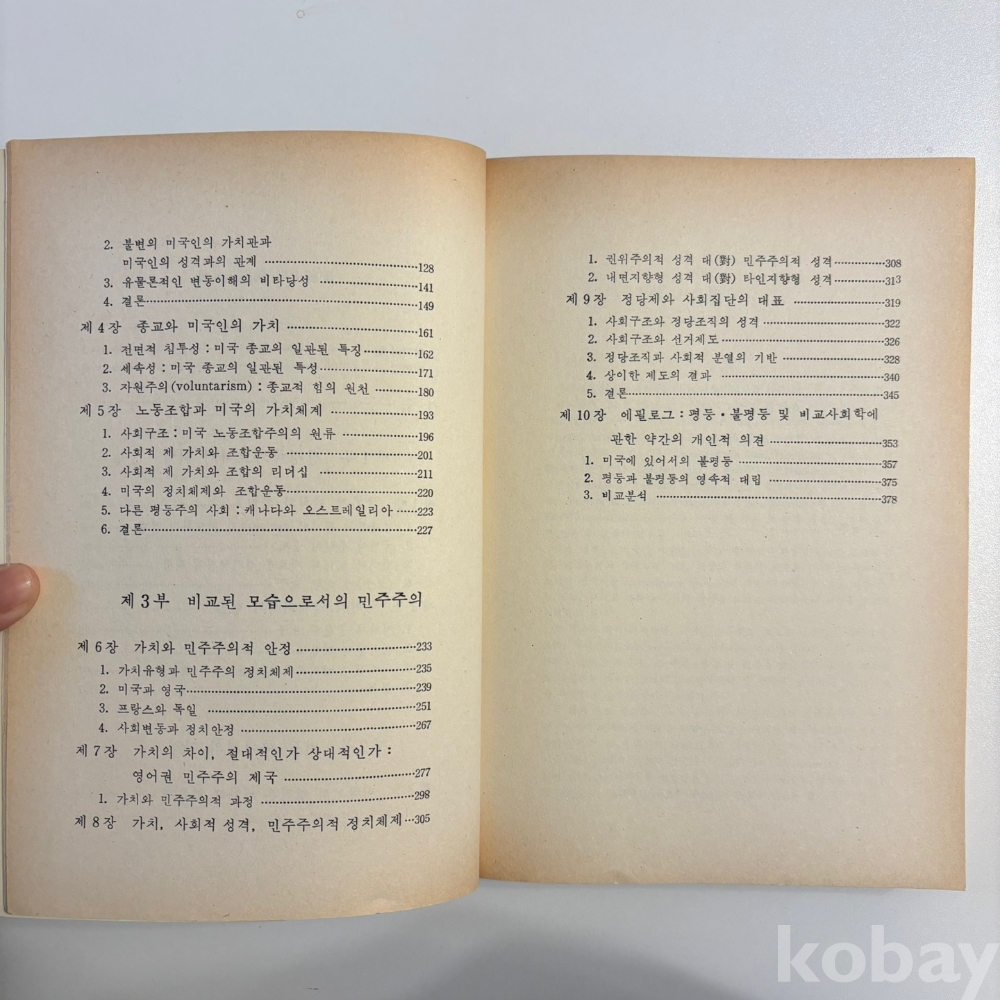 2. 불변의 미국인의 가치관과
미국인의 성격과의 관계 ……………………128
3. 유물론적인 변동이해의 비타당성 ……………141
4. 결론……………………………………149
제 4 장 종교와 미국인의 가치 ………………161
1. 전면적 침투성 : 미국 종교의 일관된 특징………162
2. 세속성 : 미국 종교의 일관된 특성……………171
3. 자원주의(voluntarism) : 종교적 힘의 원천 ………180
제 5 장 노동조합과 미국의 가치체계 ……………193
1. 사회구조 : 미국 노동조합주의의 원류 …………196
2. 사회적 제 가치와 조합운동 …………………201
3. 사회적 제 가치와 조합의 리더십 ………………211
4. 미국의 정치체제와 조합운동…………………220
5. 다른 평등주의 사회 : 캐나다와 오스트레일리아 ……223
6. 결론……………………………………227
제 3 부 비교된 모습으로서의 민주주의
제 6 장 가치와 민주주의적 안정 ………………233
1. 가치유형과 민주주의 정치체제………………235
2. 미국과 영국………………………………239
3. 프랑스와 독일 ……………………………251
4. 사회변동과 정치안정 ………………………267
제 7 장 가치의 차이, 절대적인가 상대적인가 :
영어권 민주주의 제국 …………………277
1. 가치와 민주주의적 과정 ……………………298
제 8 장 가치, 사회적 성격, 민주주의적 정치체제…305
1. 권위주의적 성격 대(對) 민주주의적 성격………308
2. 내면지향형 성격 대(對) 타인지향형 성격………313
제 9 장 정당제와 사회집단의 대표 ………………319
1. 사회구조와 정당조직의 성격 …………………322
2. 사회구조와 선거제도………………………326
3. 정당조직과 사회적 분열의 기반 ………………328
4. 상이한 제도의 결과 ………………………340
5. 결론……………………………………345
제 10 장 에필로그 : 평등・불평등 및 비교사회학에
관한 약간의 개인적 의견 ………………353
1. 미국에 있어서의 불평등 ……………………357
2. 평등과 불평등의 영속적 대립 …………………375
3. 비교분석 ………………………………378
kobay